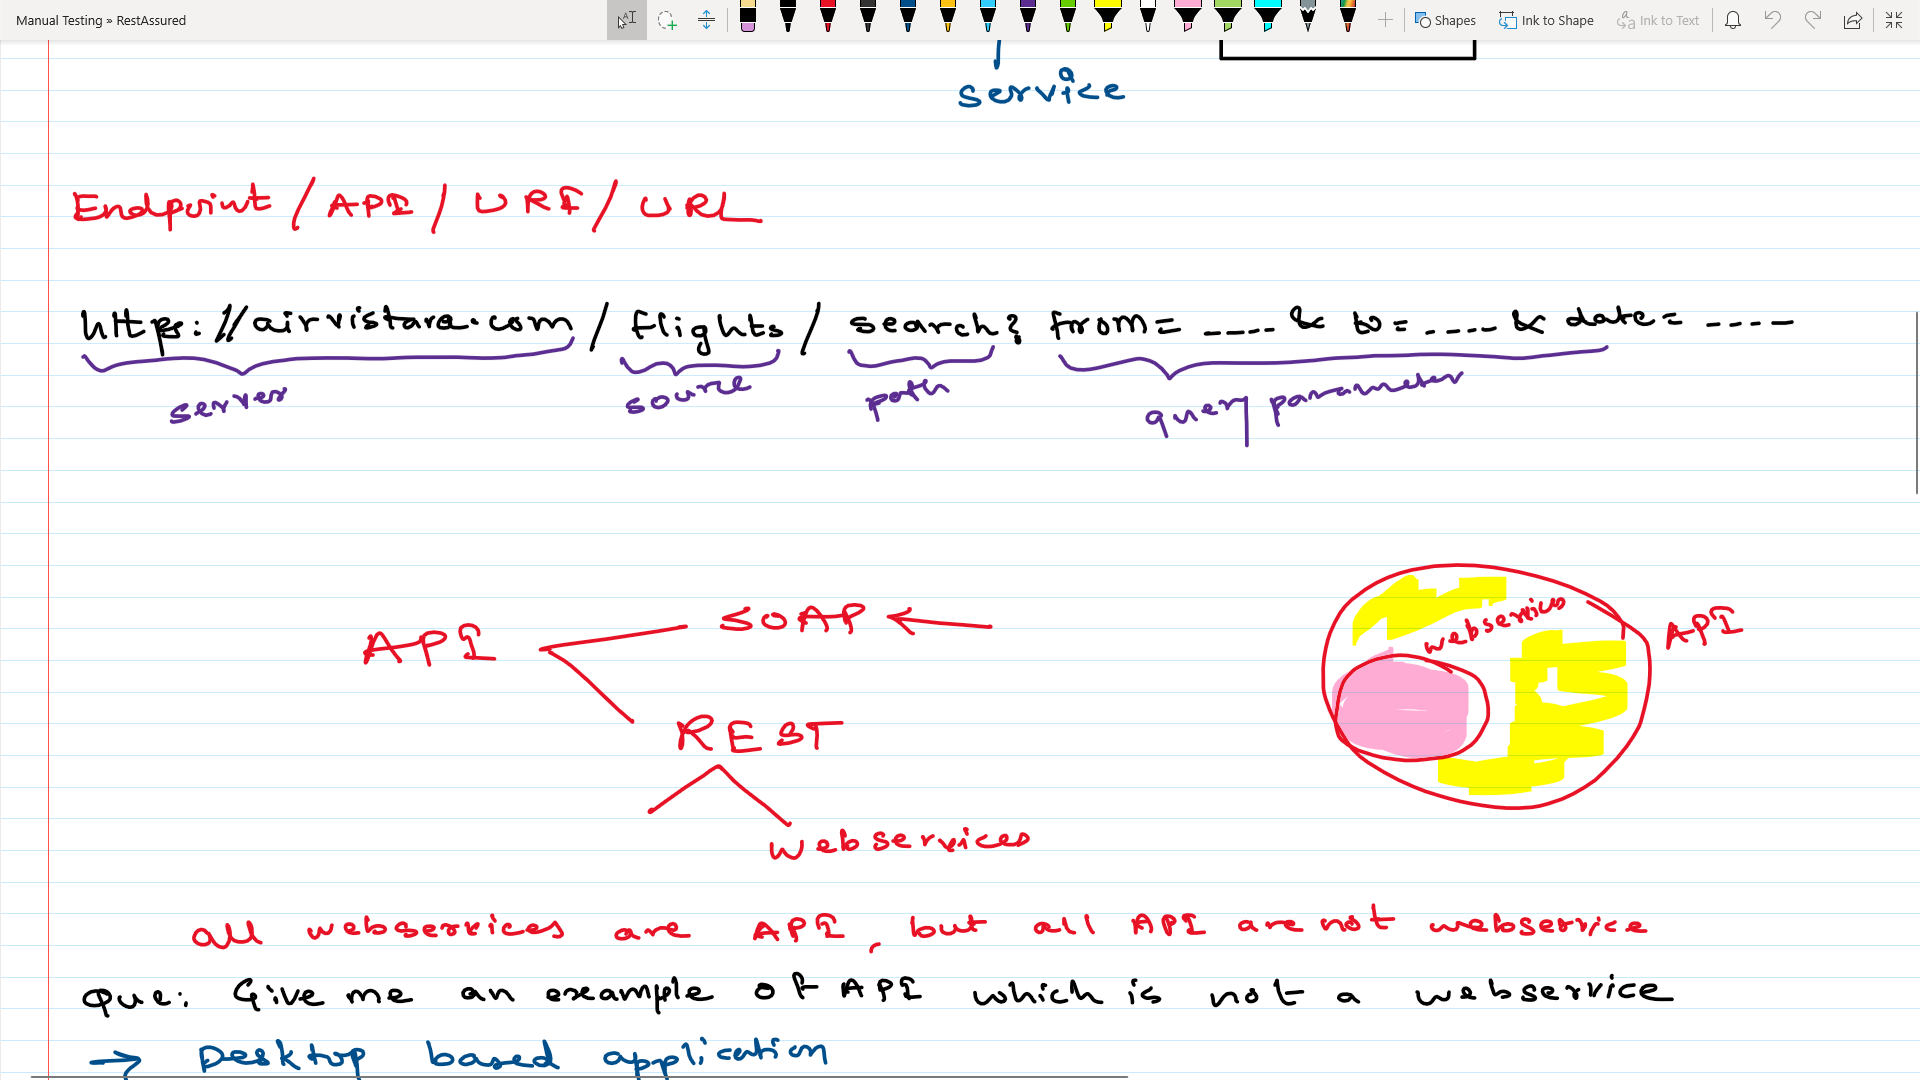 Manual Testing » RestAssured
Shapes Ink to Shape Ink to Text
service
Endpoint / API / URI / URL
https://airvistara.com / flights / search? from= ---- & to= ---- & date= ----
server source path query parameter
API SOAP
webservices API
REST
webservices
all webservices are API, but all API are not webservice
Que: Give me an example of API which is not a webservice
→ Desktop based application